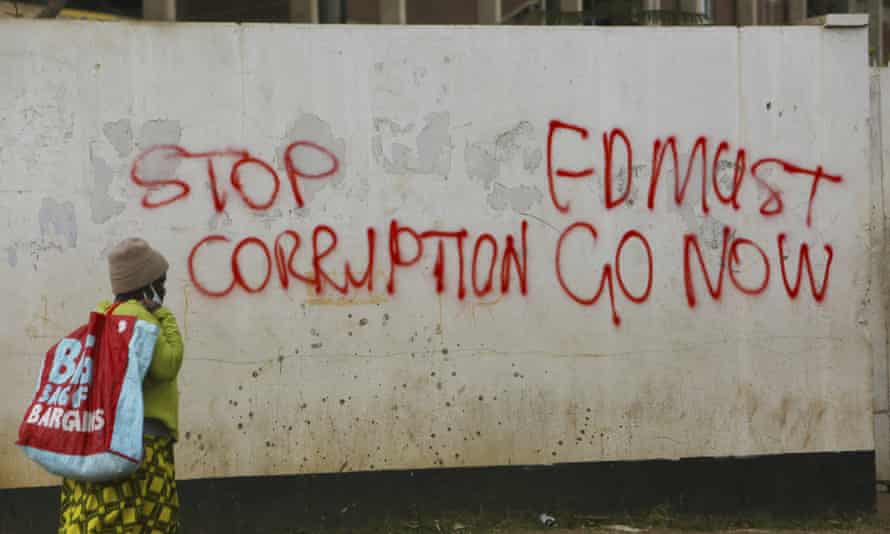 STOP
CORRUPTION
ED MUST
GO NOW
BIG
BAG OF
BARGAINS